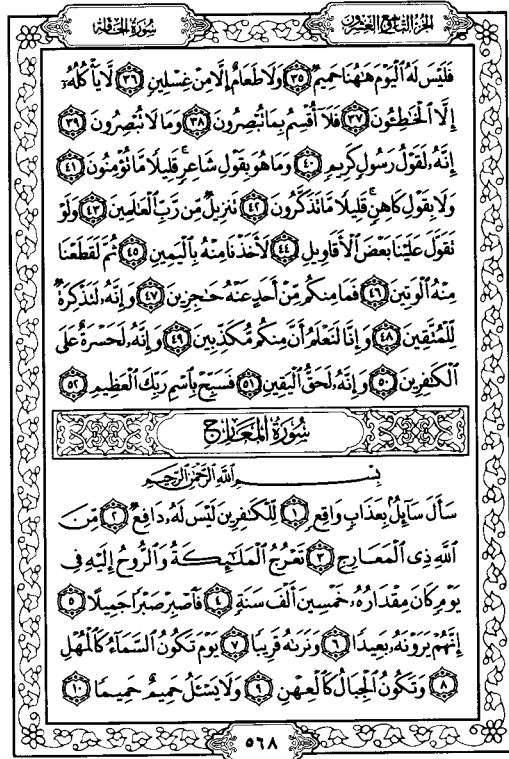 سُورَةُ الحَاقَّة
الجُزْءُ التَّاسِعُ وَالعِشْرُونَ
فَلَيْسَ لَهُ ٱلْيَوْمَ هَٰهُنَا حَمِيمٌ ٣٥ وَلَا طَعَامٌ إِلَّا مِنْ غِسْلِينٍ ٣٦ لَّا يَأْكُلُهُۥٓ
إِلَّا ٱلْخَٰطِـُٔونَ ٣٧ فَلَآ أُقْسِمُ بِمَا تُبْصِرُونَ ٣٨ وَمَا لَا تُبْصِرُونَ ٣٩
إِنَّهُۥ لَقَوْلُ رَسُولٍ كَرِيمٍ ٤٠ وَمَا هُوَ بِقَوْلِ شَاعِرٍ ۚ قَلِيلًا مَّا تُؤْمِنُونَ ٤١
وَلَا بِقَوْلِ كَاهِنٍ ۚ قَلِيلًا مَّا تَذَكَّرُونَ ٤٢ تَنزِيلٌ مِّن رَّبِّ ٱلْعَٰلَمِينَ ٤٣ وَلَوْ
تَقَوَّلَ عَلَيْنَا بَعْضَ ٱلْأَقَاوِيلِ ٤٤ لَأَخَذْنَا مِنْهُ بِٱلْيَمِينِ ٤٥ ثُمَّ لَقَطَعْنَا
مِنْهُ ٱلْوَتِينَ ٤٦ فَمَا مِنكُم مِّنْ أَحَدٍ عَنْهُ حَٰجِزِينَ ٤٧ وَإِنَّهُۥ لَتَذْكِرَةٌ
لِّلْمُتَّقِينَ ٤٨ وَإِنَّا لَنَعْلَمُ أَنَّ مِنكُم مُّكَذِّبِينَ ٤٩ وَإِنَّهُۥ لَحَسْرَةٌ عَلَى
ٱلْكَٰفِرِينَ ٥٠ وَإِنَّهُۥ لَحَقُّ ٱلْيَقِينِ ٥١ فَسَبِّحْ بِٱسْمِ رَبِّكَ ٱلْعَظِيمِ ٥٢
سُورَةُ المَعَارِجِ
بِسْمِ ٱللَّهِ ٱلرَّحْمَٰنِ ٱلرَّحِيمِ
سَأَلَ سَآئِلٌۢ بِعَذَابٍ وَاقِعٍ ١ لِّلْكَٰفِرِينَ لَيْسَ لَهُۥ دَافِعٌ ٢ مِّنَ
ٱللَّهِ ذِى ٱلْمَعَارِجِ ٣ تَعْرُجُ ٱلْمَلَٰٓئِكَةُ وَٱلرُّوحُ إِلَيْهِ فِى
يَوْمٍ كَانَ مِقْدَارُهُۥ خَمْسِينَ أَلْفَ سَنَةٍ ٤ فَٱصْبِرْ صَبْرًا جَمِيلًا ٥
إِنَّهُمْ يَرَوْنَهُۥ بَعِيدًا ٦ وَنَرَىٰهُ قَرِيبًا ٧ يَوْمَ تَكُونُ ٱلسَّمَآءُ كَٱلْمُهْلِ
٨ وَتَكُونُ ٱلْجِبَالُ كَٱلْعِهْنِ ٩ وَلَا يَسْـَٔلُ حَمِيمٌ حَمِيمًا ١٠
٥٦٨